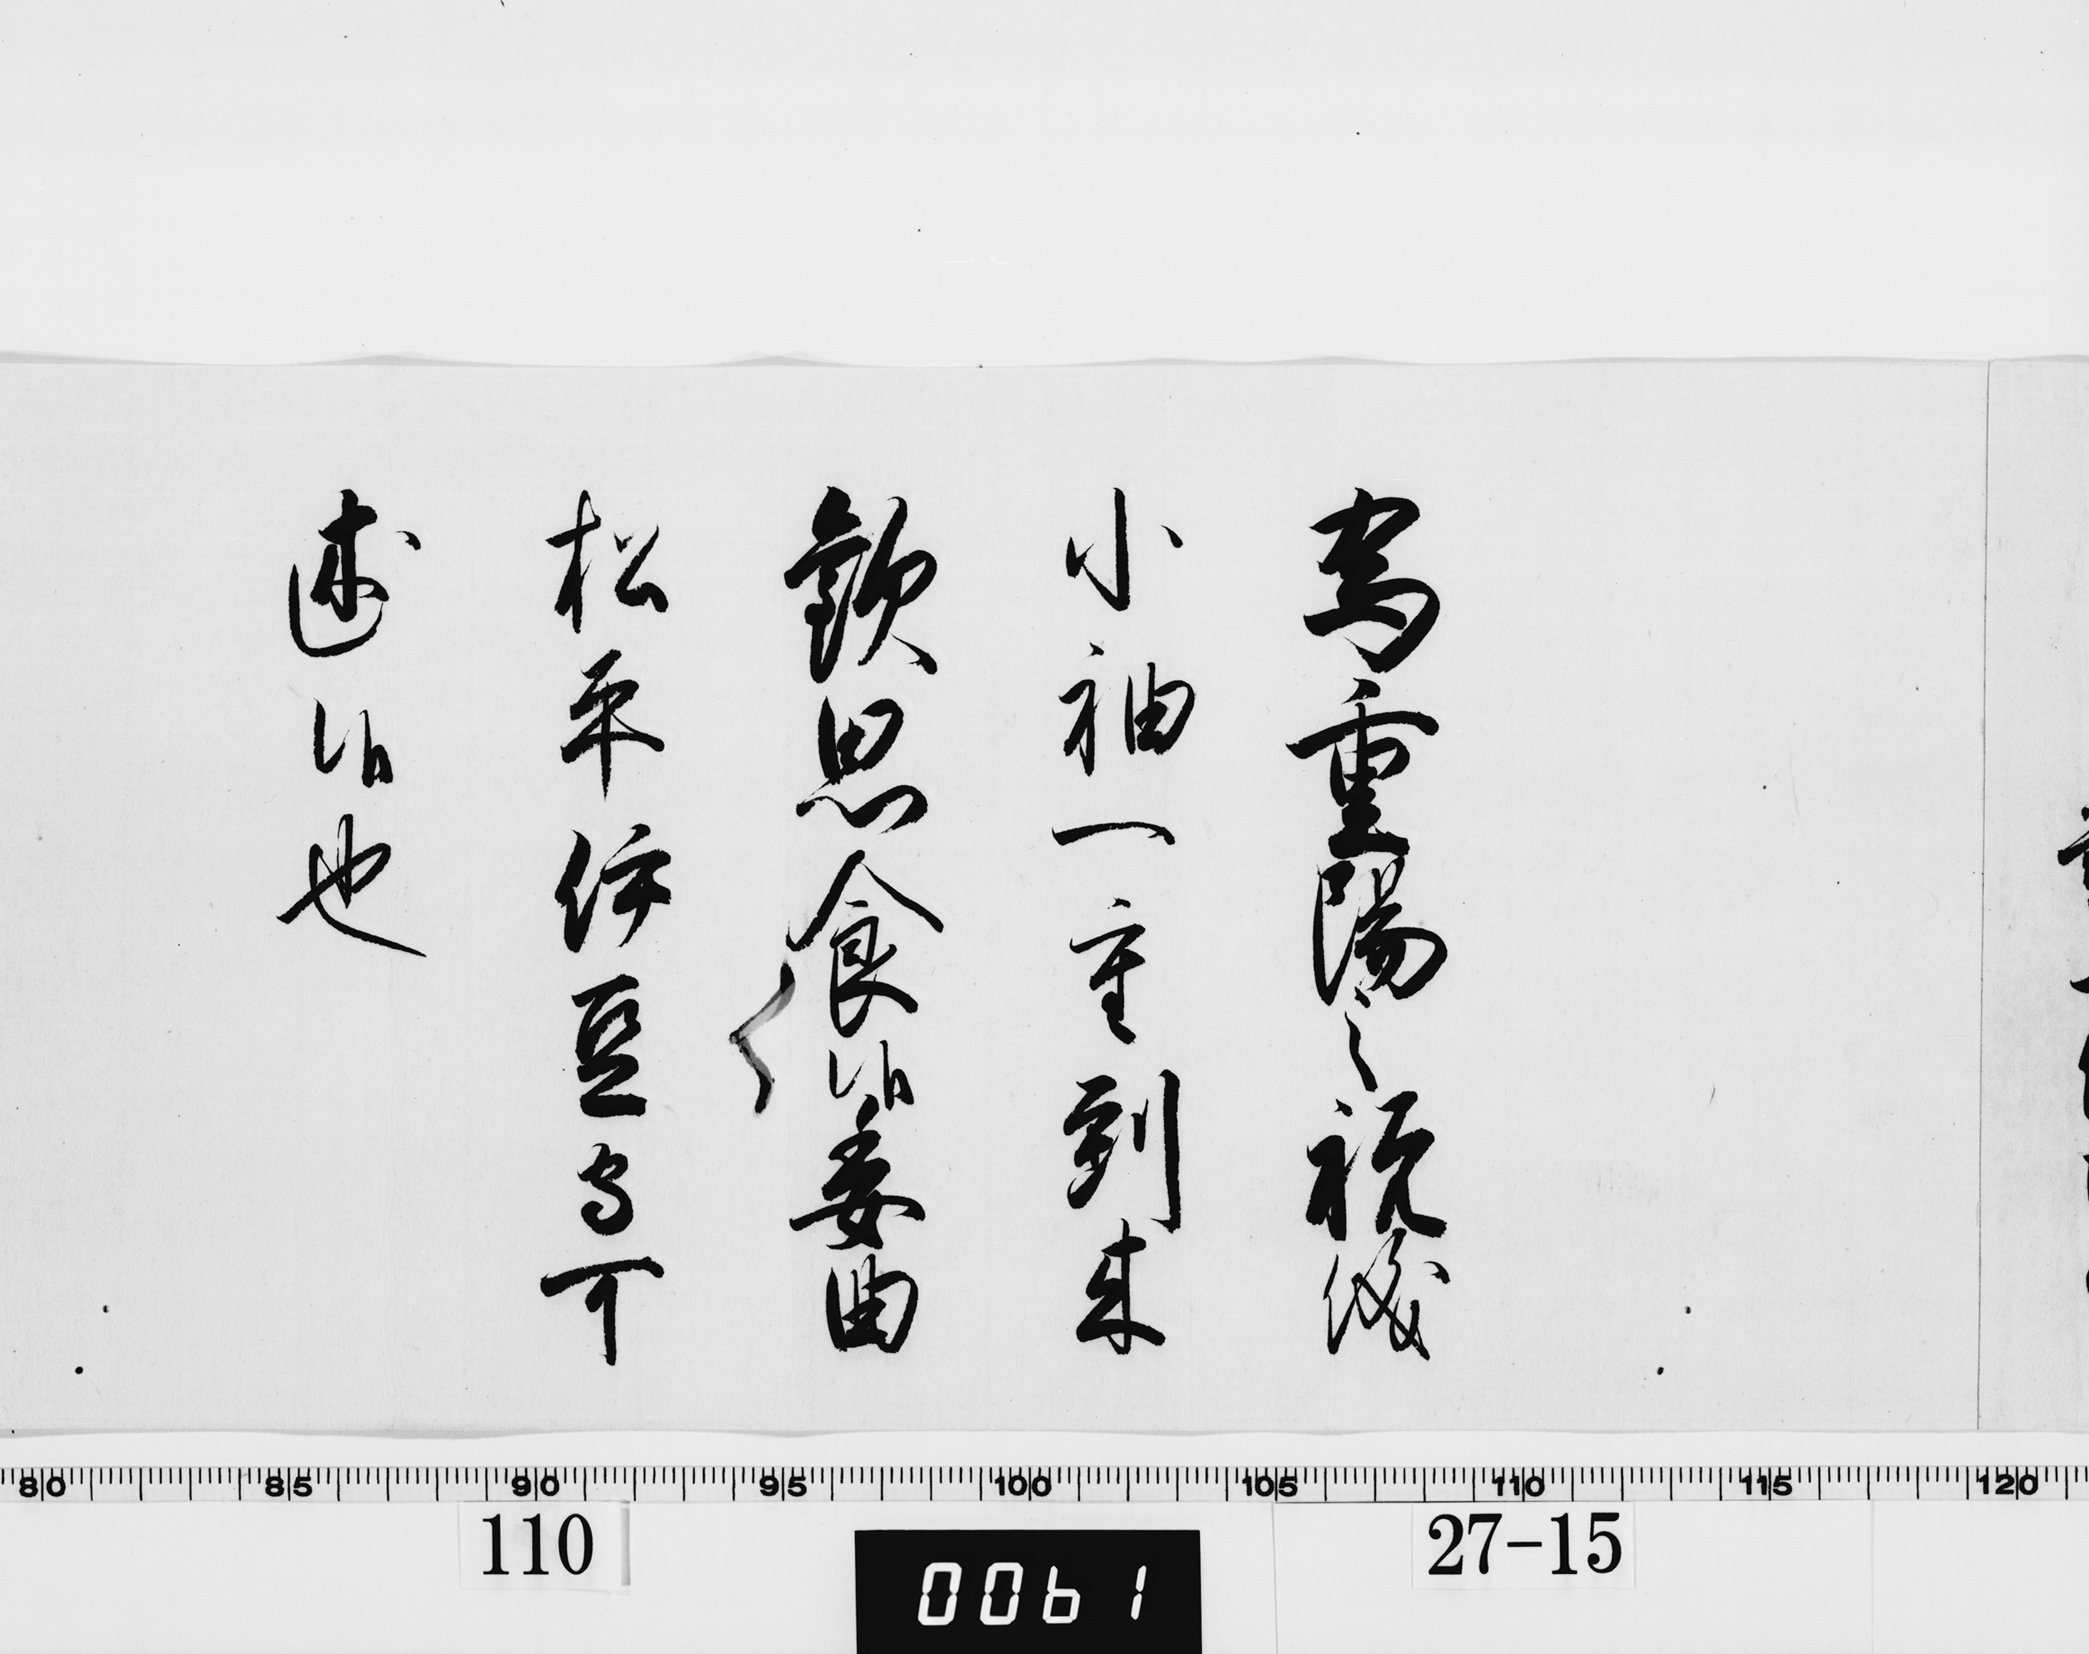 為重陽之祝儀
小袖一重到来
歓思食候委曲
松平伊豆守可
述候也
80 85 90 95 100 105 110 115 120
110
0061
27-15